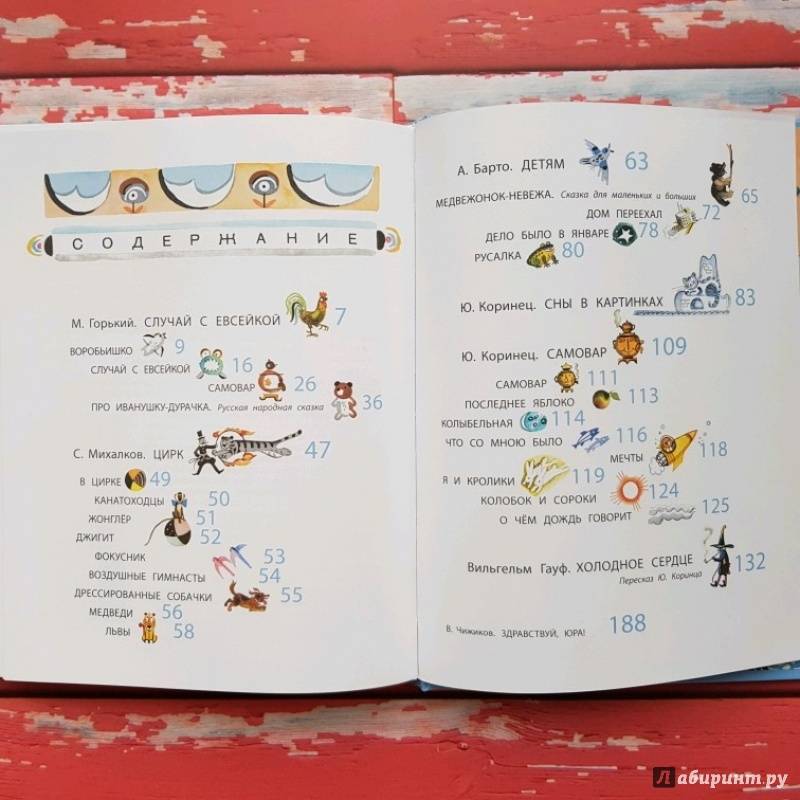 СОДЕРЖАНИЕ
М. Горький. СЛУЧАЙ С ЕВСЕЙКОЙ 7
ВОРОБЬИШКО 9
СЛУЧАЙ С ЕВСЕЙКОЙ 16
САМОВАР 26
ПРО ИВАНУШКУ-ДУРАЧКА. Русская народная сказка 36
С. Михалков. ЦИРК 47
В ЦИРКЕ 49
КАНАТОХОДЦЫ 50
ЖОНГЛЁР 51
ДЖИГИТ 52
ФОКУСНИК 53
ВОЗДУШНЫЕ ГИМНАСТЫ 54
ДРЕССИРОВАННЫЕ СОБАЧКИ 55
МЕДВЕДИ 56
ЛЬВЫ 58
А. Барто. ДЕТЯМ 63
МЕДВЕЖОНОК-НЕВЕЖА. Сказка для маленьких и больших 65
ДОМ ПЕРЕЕХАЛ 72
ДЕЛО БЫЛО В ЯНВАРЕ 78
РУСАЛКА 80
Ю. Коринец. СНЫ В КАРТИНКАХ 83
Ю. Коринец. САМОВАР 109
САМОВАР 111
ПОСЛЕДНЕЕ ЯБЛОКО 113
КОЛЫБЕЛЬНАЯ 114
ЧТО СО МНОЮ БЫЛО 116
МЕЧТЫ 118
Я И КРОЛИКИ 119
КОЛОБОК И СОРОКИ 124
О ЧЁМ ДОЖДЬ ГОВОРИТ 125
Вильгельм Гауф. ХОЛОДНОЕ СЕРДЦЕ 132
Пересказ Ю. Коринца
В. Чижиков. ЗДРАВСТВУЙ, ЮРА! 188
Лабиринт.ру